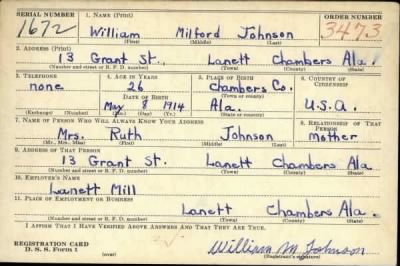 SERIAL NUMBER 1. NAME (Print) ORDER NUMBER
1672 William Milford Johnson 3473
(First) (Middle) (Last)
2. ADDRESS (Print)
13 Grant St., Lanett Chambers Ala.
(Number and street or R. F. D. number) (Town) (County) (State)
3. TELEPHONE 4. AGE IN YEARS 5. PLACE OF BIRTH 6. COUNTRY OF CITIZENSHIP
none 26 Chambers Co.
DATE OF BIRTH (Town or county)
May 8 1914 Ala. U.S.A.
(Exchange) (Number) (Mo.) (Day) (Yr.) (State or country)
7. NAME OF PERSON WHO WILL ALWAYS KNOW YOUR ADDRESS 8. RELATIONSHIP OF THAT PERSON
Mrs. Ruth Johnson mother
(Mr., Mrs., Miss) (First) (Middle) (Last)
9. ADDRESS OF THAT PERSON
13 Grant St. Lanett Chambers Ala
(Number and street or R. F. D. number) (Town) (County) (State)
10. EMPLOYER'S NAME
Lanett Mill
11. PLACE OF EMPLOYMENT OR BUSINESS
Lanett Chambers Ala.
(Number and street or R. F. D. number) (Town) (County) (State)
I AFFIRM THAT I HAVE VERIFIED ABOVE ANSWERS AND THAT THEY ARE TRUE.
REGISTRATION CARD
D. S. S. Form 1 (over) William M Johnson
(Registrant's signature)